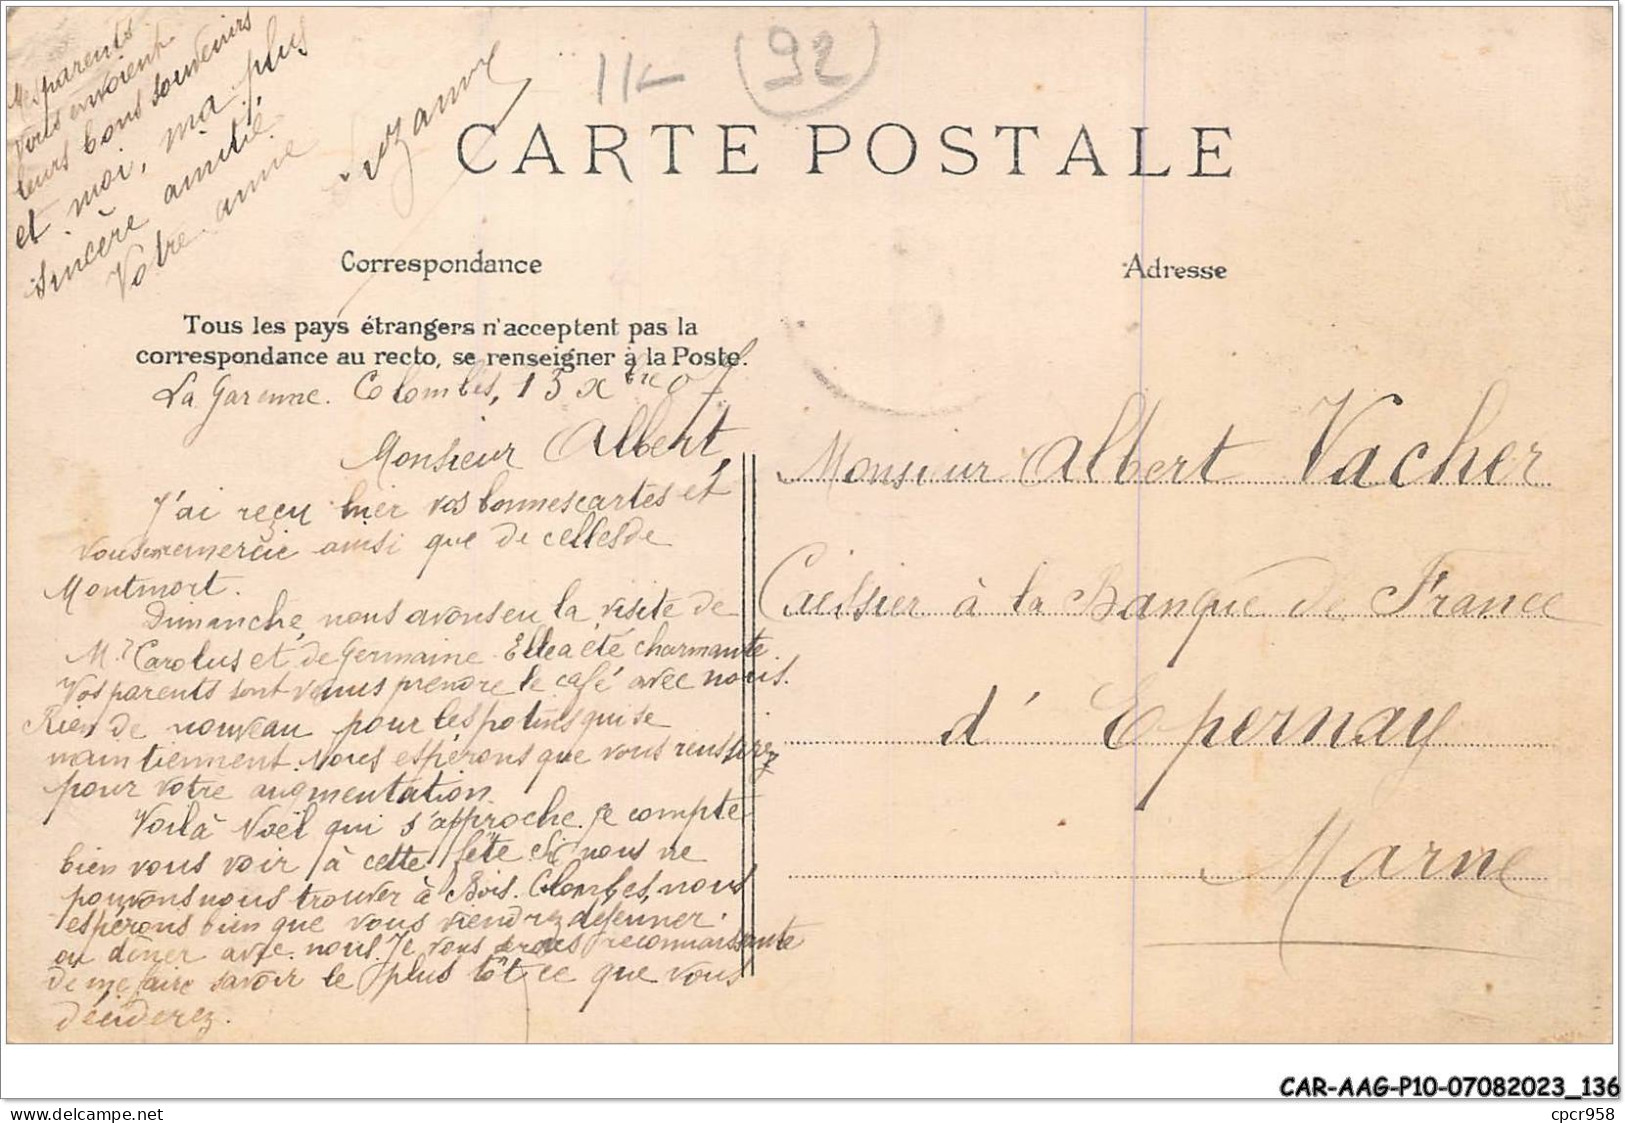 11-
92
CARTE POSTALE
Correspondance
Adresse
Tous les pays étrangers n'acceptent pas la
correspondance au recto, se renseigner à la Poste.
La Garenne. Colombes, 13 xbre 07
Monsieur Albert,
J'ai reçu hier vos bonnes cartes et
vous en remercie ainsi que de celles de
Montmort.
Dimanche, nous avons eu la visite de
Mr Carolus et de Germaine. Elle a été charmante.
Vos parents sont venus prendre le café avec nous.
Rien de nouveau pour les potins qui se
maintiennent. Nous espérons que vous réussirez
pour votre augmentation.
Voilà Noël qui s'approche. Je compte
bien vous voir à cette fête. Si nous ne
pouvons nous trouver à Bois. Colombes, nous
espérons bien que vous viendrez déjeuner
ou dîner avec nous. Je vous serais reconnaissante
de me faire savoir le plus tôt ce que vous
déciderez.
Mes parents
vous envoient
leurs bons souvenirs
et moi, ma plus
sincère amitié.
Votre amie
Suzanne
Monsieur Albert Vacher
Caissier à la Banque de France
d'Epernay
Marne
CAR-AAG-P10-07082023_136
www.delcampe.net
cpcr958